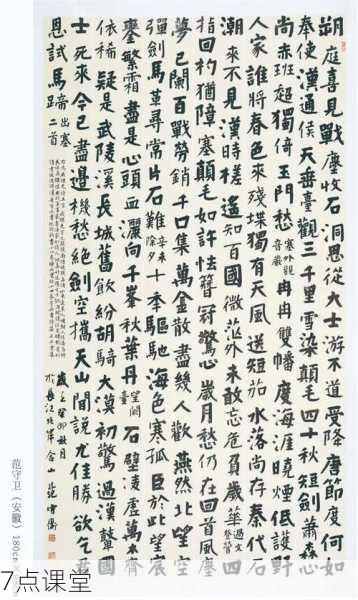 朔庭喜見戰塵收石洞恩從大士游不道受降唐節度何如
奉使漢通侯天垂臺觀三千里雪染顛毛四十秋短劍蕭森
尚赤班超獨倚玉門愁塞外觀音巖冉冉雙幡度海涯曉煙低護野
人家誰將春色來殘堞獨有天風送短茄水落尚存秦代石
潮來不見漢時槎遙知百國微茫外未敢忘危負歲華過文登營四
指回杓猶障塞顛毛如許怯簪冠驚心歲月愁仍在回首風塵
夢已闌百戰勞銷千口集萬金散盡幾人歡燕然北望空
彈劍馬革尋常片石難辛未除夕十年驅馳海色寒孤臣於此望宸
鑾繁霜盡是心頭血灑向千峯秋葉丹望闕臺石壁凌虛萬木
依稀疑是武陵溪長城舊飲紛胡騎大漠初驚過漢鼙
士死來今已盡邊機愁絕劍空攜天山聞說尤佳勝欲乞君
恩試馬蹄出塞二首
歲在癸卯秋月
於長江北岸含山范守衛
范守卫（安徽）180cm×
7点课堂